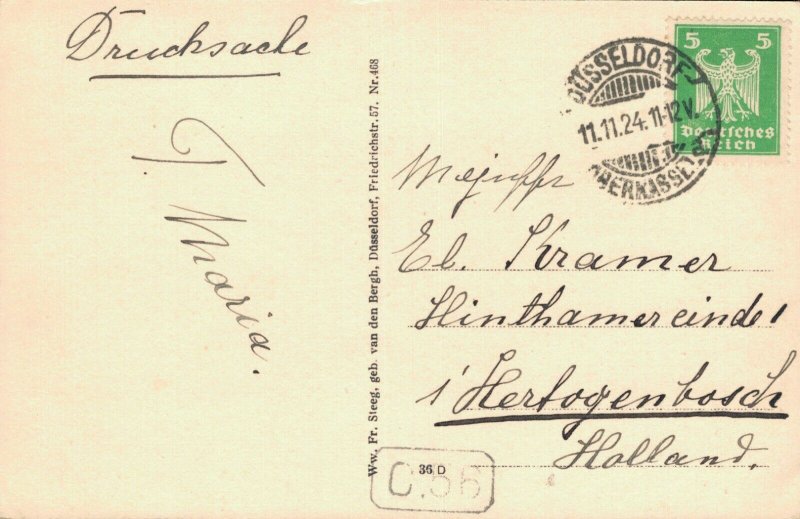 Drucksache
T. Maria.
Ww. Fr. Steeg, geb. van den Bergh, Düsseldorf, Friedrichstr. 57. Nr. 468
DÜSSELDORF
11.11.24. 11-12 V.
OBERKASSEL
5 5
Deutsches
Reich
Mejuffr
El. Kramer
Hinthamereinde 1
s' Hertogenbosch
Holland.
36 D
C.56